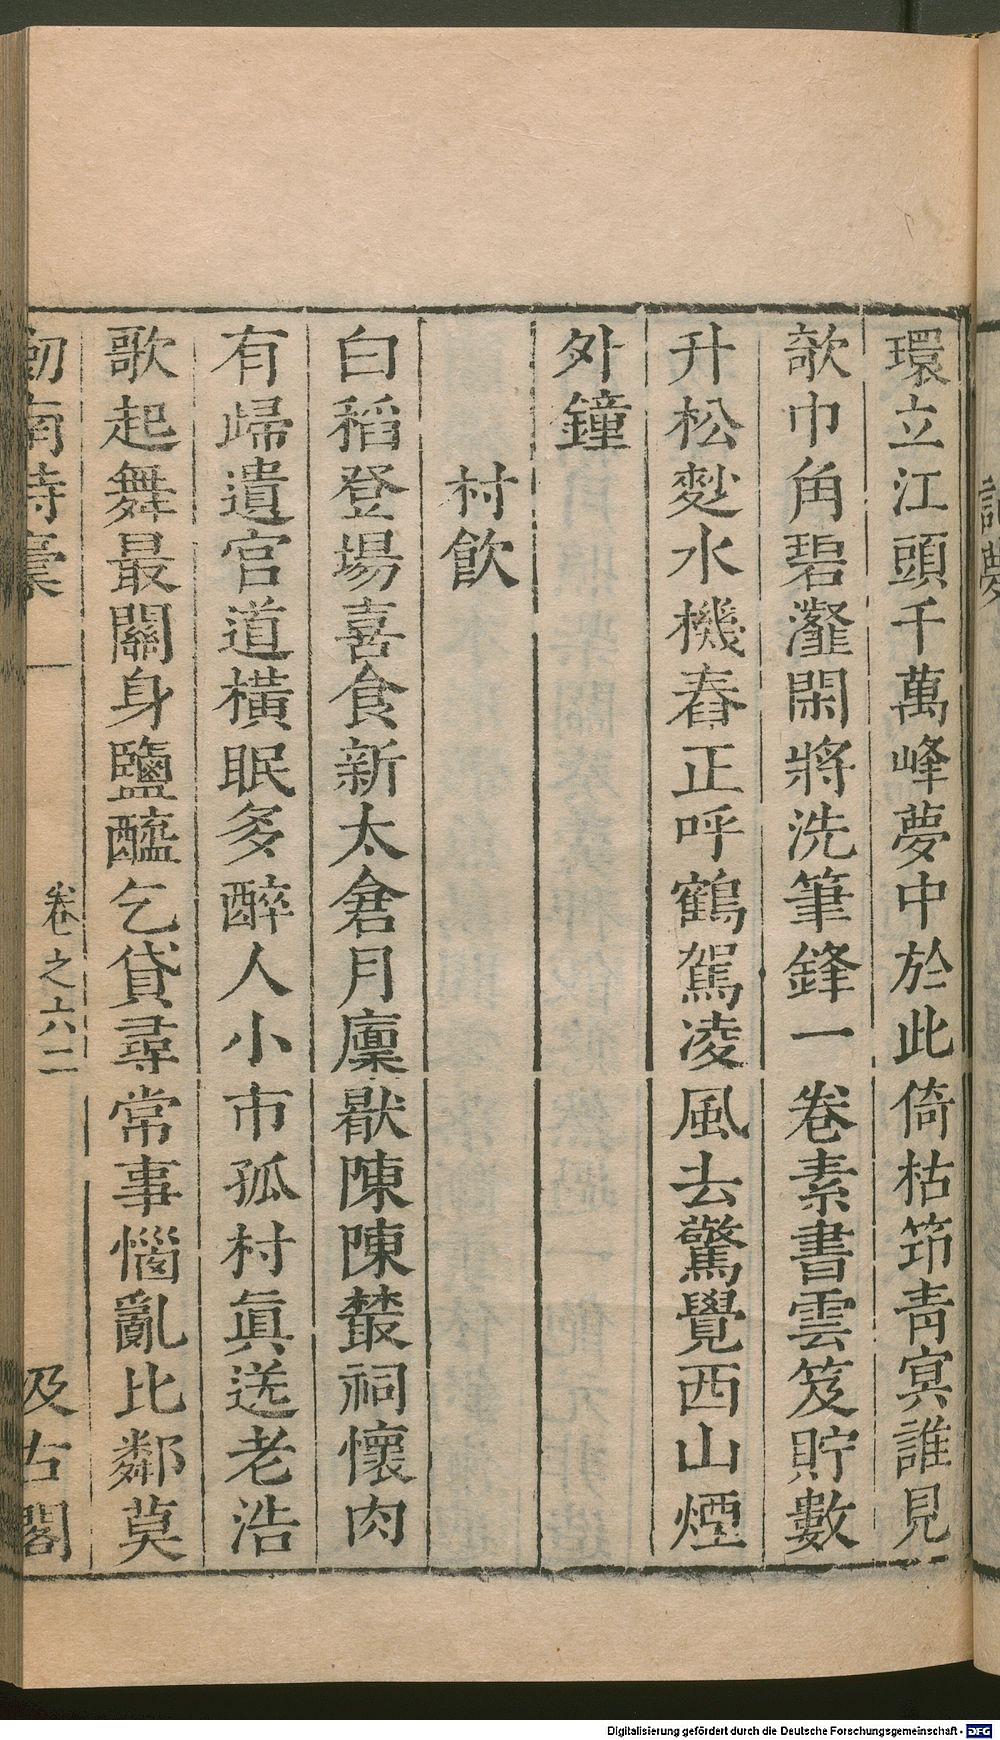 環立江頭千萬峰夢中於此倚枯筇青冥誰見
欹巾角碧灘閑將洗筆鋒一卷素書雲笈貯數
升松麨水機舂正呼鶴駕凌風去驚覺西山煙
外鐘
村飲
白稻登場喜食新太倉月廩厭陳陳叢祠懷肉
有歸遺官道橫眠多醉人小市孤村真送老浩
歌起舞最關身鹽醯乞貸尋常事惱亂比鄰莫
劎南詩稾
卷之六二
汲古閣
Digitalisierung gefördert durch die Deutsche Forschungsgemeinschaft - DFG